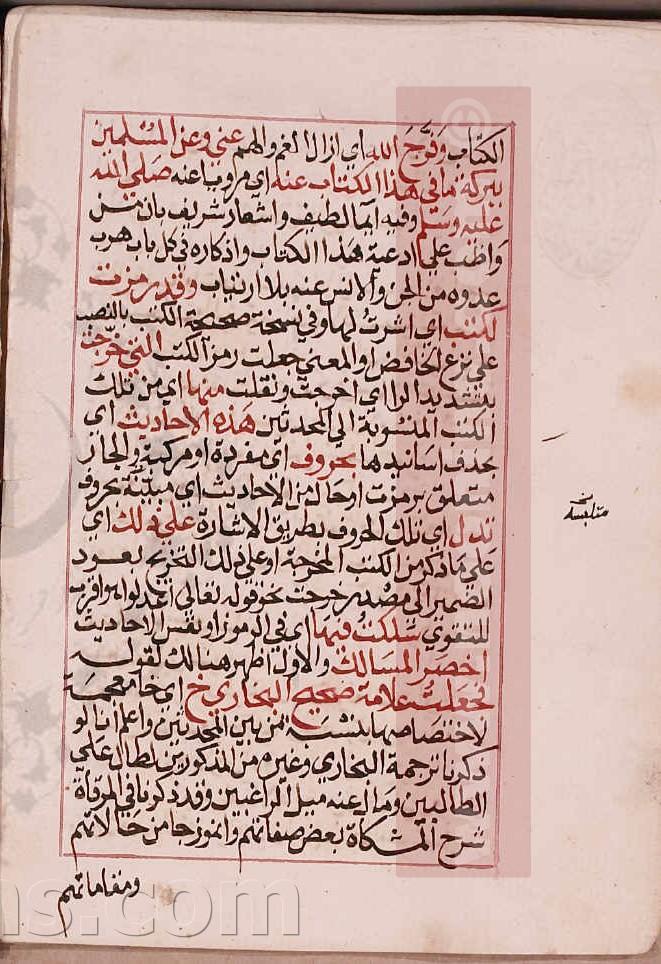 الكتاب وفرج الله اي ازال الغم والهم عني وعن المسلمين
ببركة ما في هذا الكتاب عنه اي مرويا عنه صلى الله
عليه وسلم وفيه ايما لطيف واشعار شريف بان من
واظب على ادعية هذا الكتاب واذكاره في كل باب هرب
عدوه من الجن والانس عنه بلا ارتياب وقد رمزت
لكتب اي اشرت لها وفي نسخة صحيحة الكتب بالنصب
على نزع الخافض او المعنى جعلت رمز الكتب التي خرجت
بتشديد الرا اي اخرجت ونقلت منها اي من تلك
الكتب المنسوبة الى المحدثين هذه الاحاديث اي
بحذف اسانيدها بحروف اي مفردة او مركبة والجار
متعلق برمزت او حال من الاحاديث اي مبينة بحروف
تدل اي تلك الحروف بطريق الاشارة على ذلك اي
على ما ذكر من الكتب المخرجة او على ذلك التخريج بعود
الضمير الى مصدر خرجت نحو قوله تعالى اعدلوا هو اقرب
للتقوى سلكت فيها اي في الرموز او نفس الاحاديث
اخصر المسالك والاول اظهر هنالك لقوله
فجعلت علامة صحيح البخاري خ اي خا معجمة
لاختصاصها بنسبته من بين المحدثين واعلم انا لو
ذكرنا ترجمة البخاري وغيره من المذكورين لطال على
الطالبين ومال عنه ميل الراغبين وقد ذكرنا في المرقاة
شرح المشكاة بعض صفاتهم وانموزجا من حالاتهم
ومقاماتهم
ns.com